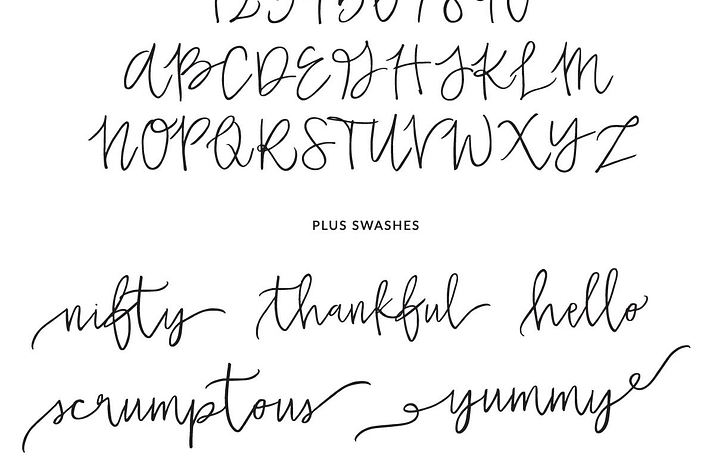 1234567890
ABCDEFGHIJKLM
NOPQRSTUVWXYZ
PLUS SWASHES
nifty thankful hello
scrumptous yummy